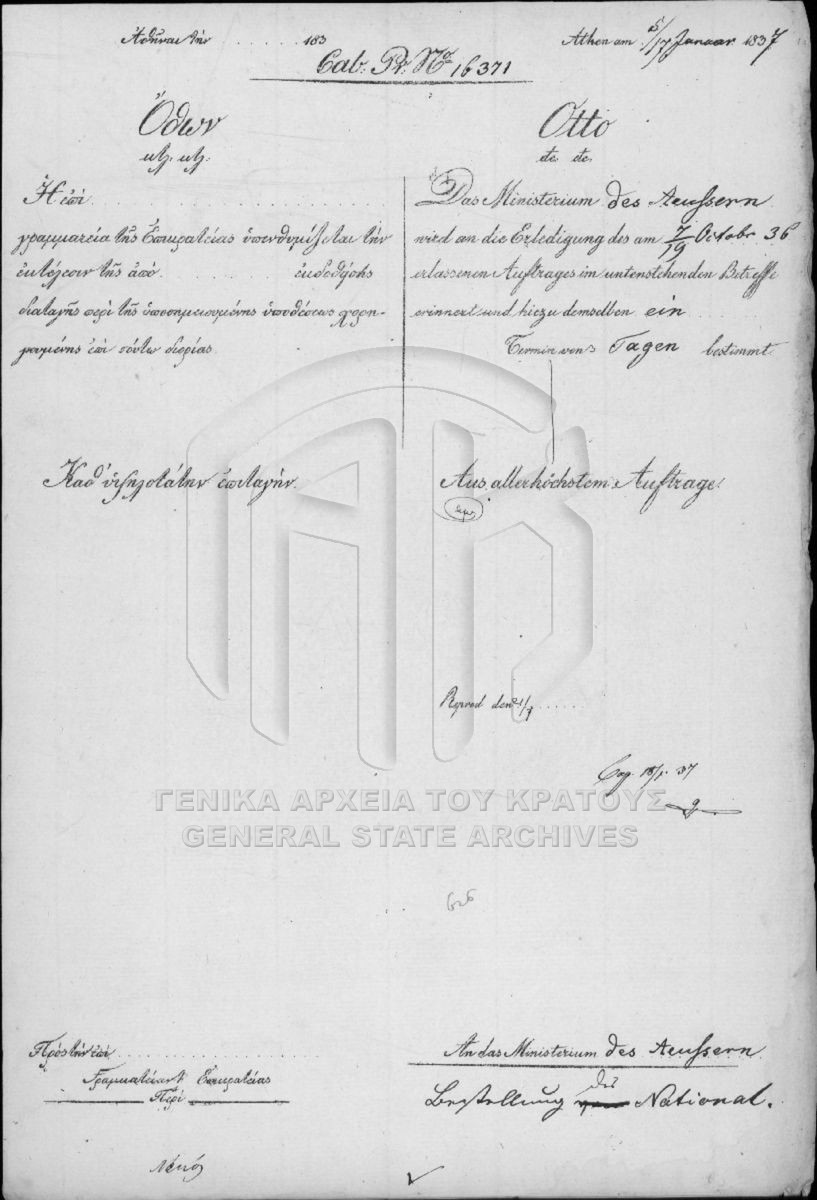 Ἀθῆναι τὴν . . . . . . . 183
Athen am 5/17 Januar 1837
Cab. Pr. No 16371
Ὄθων
κτλ. κτλ.
Ἡ ἐπὶ . . . . . . . . . . . . . . . . . .
γραμματεία τῆς Ἐπικρατείας ὑπενθυμίζεται τὴν
ἐκτέλεσιν τῆς ἀπὸ . . . . . . . . . ἐκδοθείσης
διαταγῆς περὶ τῆς ὑποσημειουμένης ὑποθέσεως χορη-
γουμένης ἐπὶ τούτω διορίας.
Καθ' ὑψηλοτάτην ἐπιταγήν.
Otto
etc. etc.
Das Ministerium des Aeussern
wird an die Erledigung des am 7/19 Octobr 36
erlassenen Auftrages im untenstehenden Betreffe
erinnert und hiezu demselben ein . . . . .
Termin von 3 Tagen bestimmt
Aus allerhöchstem Auftrage.
Reprod den 21/1 . . . . .
18/1. 37
ΓΕΝΙΚΑ ΑΡΧΕΙΑ ΤΟΥ ΚΡΑΤΟΥΣ
GENERAL STATE ARCHIVES
Πρὸς τὴν ἐπὶ . . . . . . . . . . . . . . . . .
Γραμματείαν τ. Ἐπικρατείας
Περὶ
An das Ministerium des Aeussern
Bestellung des National.